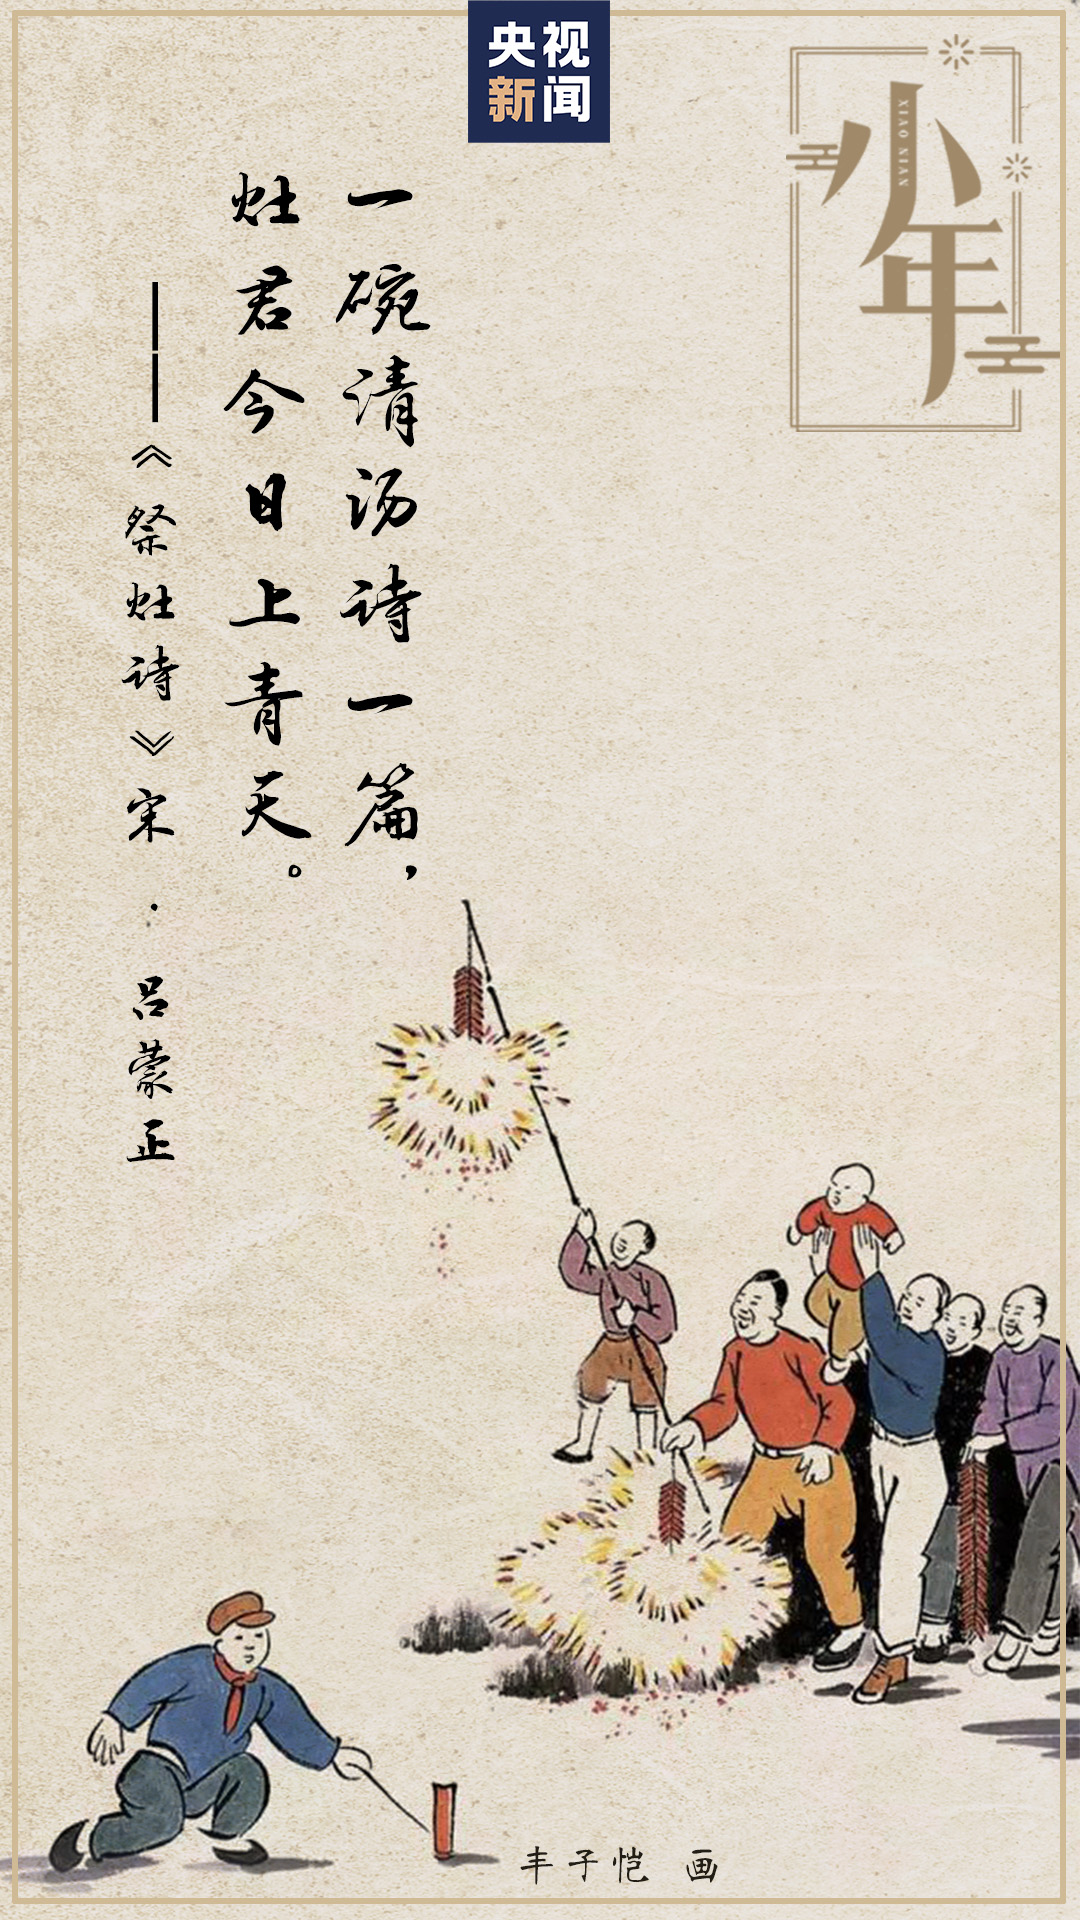 央视
新闻
小年
XIAO NIAN
一碗清汤诗一篇，
灶君今日上青天。
——《祭灶诗》宋·吕蒙正
丰子恺 画